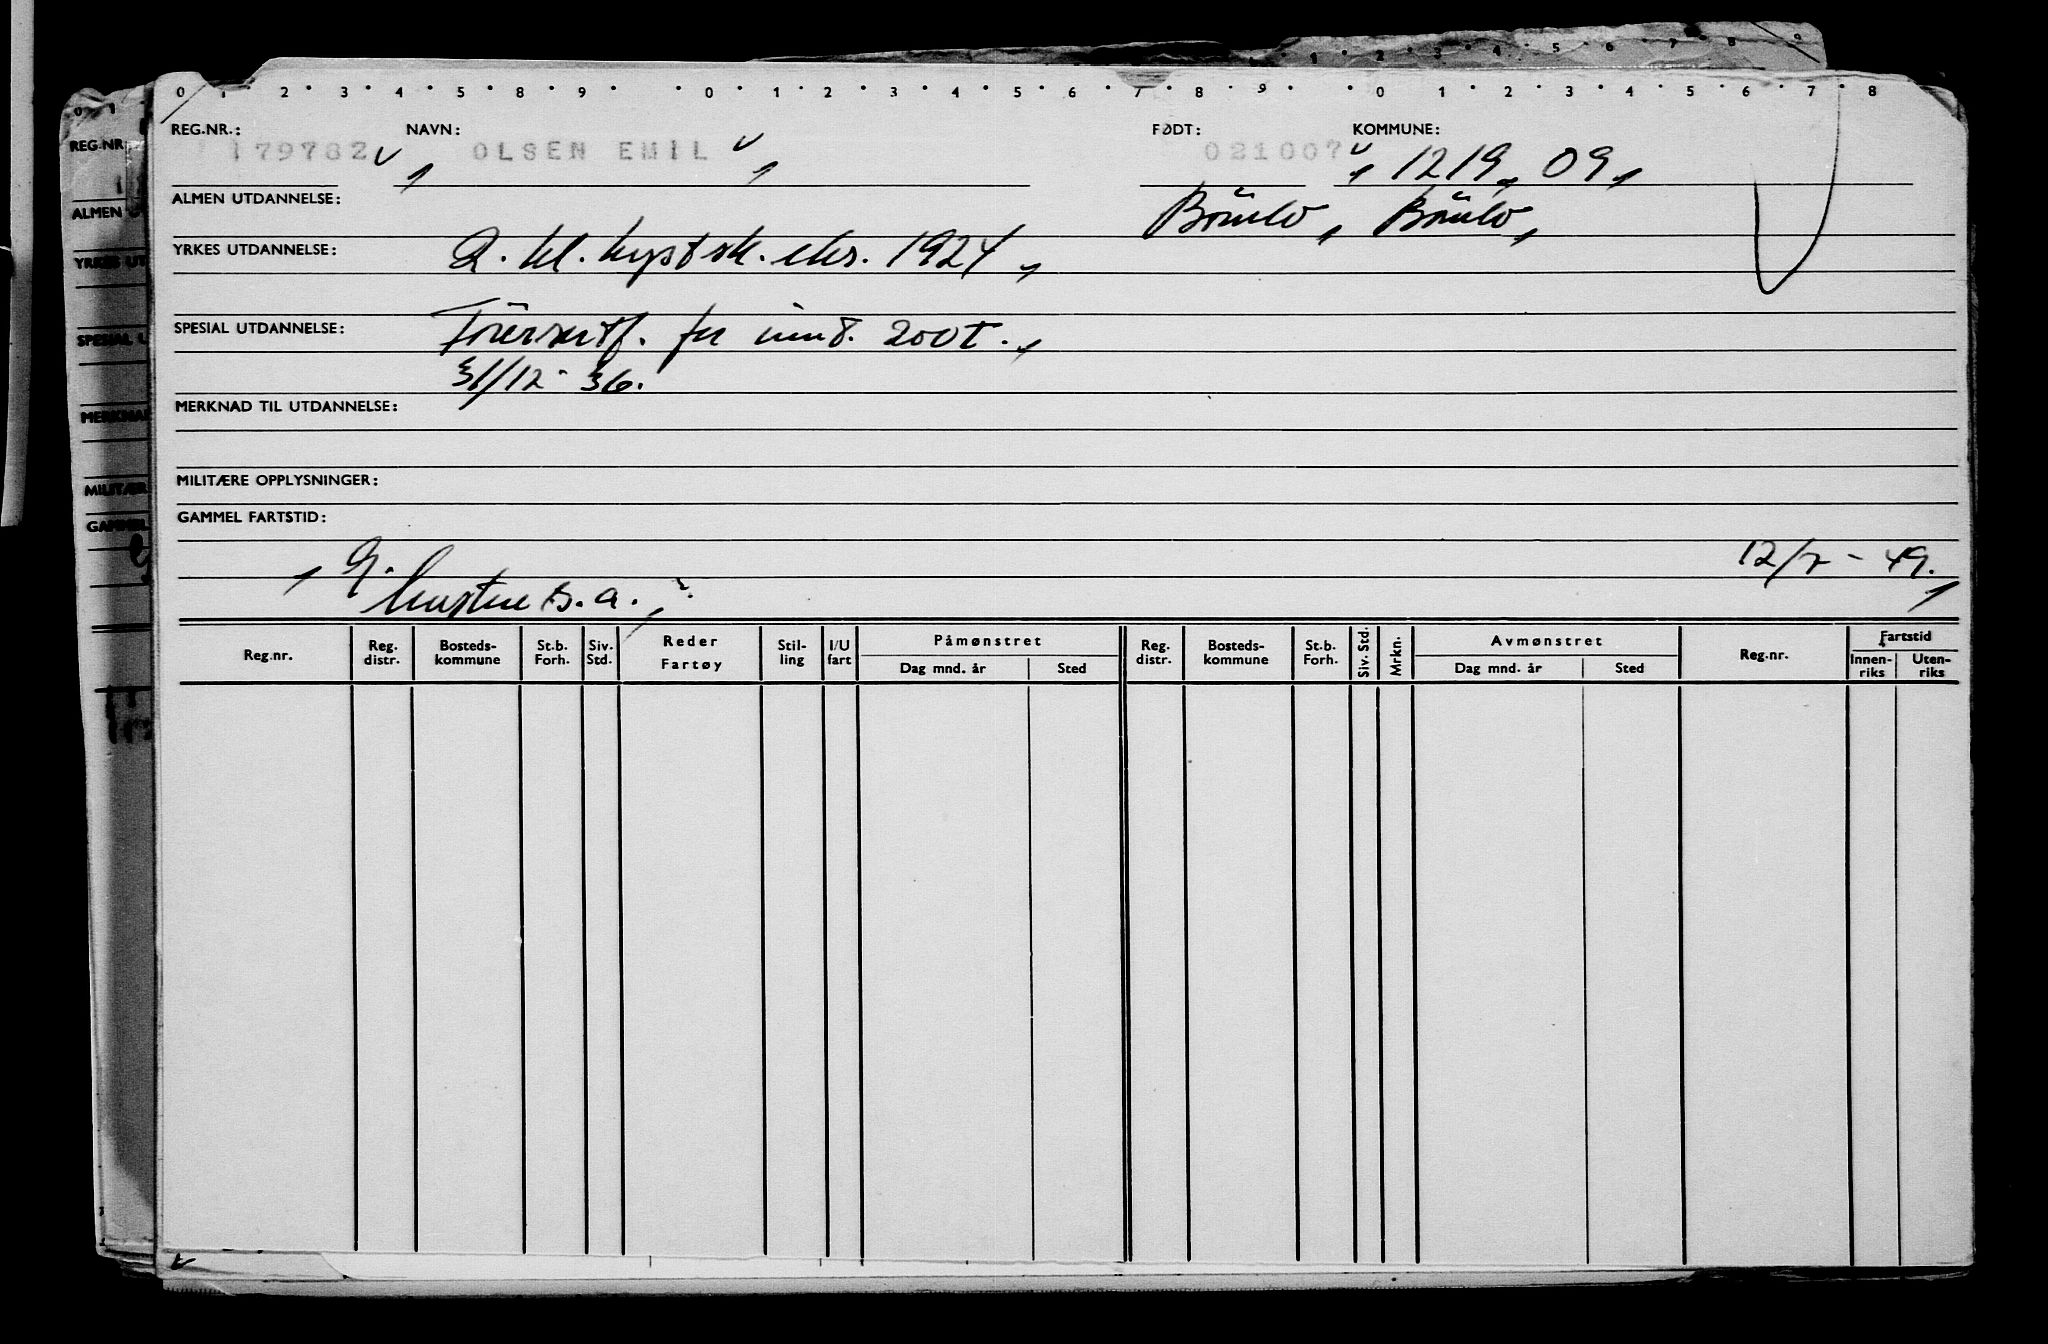 0 1 2 3 4 5 6 7 8 9
0 1 2 3 4 5 6 7 8 9 0 1 2 3 4 5 6 7 8 9 0 1 2 3 4 5 6 7 8
REG.NR.: NAVN: FØDT: KOMMUNE:
179782 OLSEN EMIL 021007 1219, 09,
ALMEN UTDANNELSE: Bömlo, Bömlo,
YRKES UTDANNELSE: 2. kl. kystsk. eks. 1924,
SPESIAL UTDANNELSE: Försertf. for innt. 200t.,
31/12-36.
MERKNAD TIL UTDANNELSE:
MILITÆRE OPPLYSNINGER:
GAMMEL FARTSTID:
12/7-49.
B.a.,
Reg.nr. Reg. distr. Bosteds-kommune St.b. Forh. Siv. Std. Reder Fartøy Stil-ling I/U fart Påmønstret Dag mnd. år Sted Reg. distr. Bosteds-kommune St.b. Forh. Siv. Std. Mrkn. Avmønstret Dag mnd. år Sted Reg.nr. Fartstid Innen-riks Uten-riks